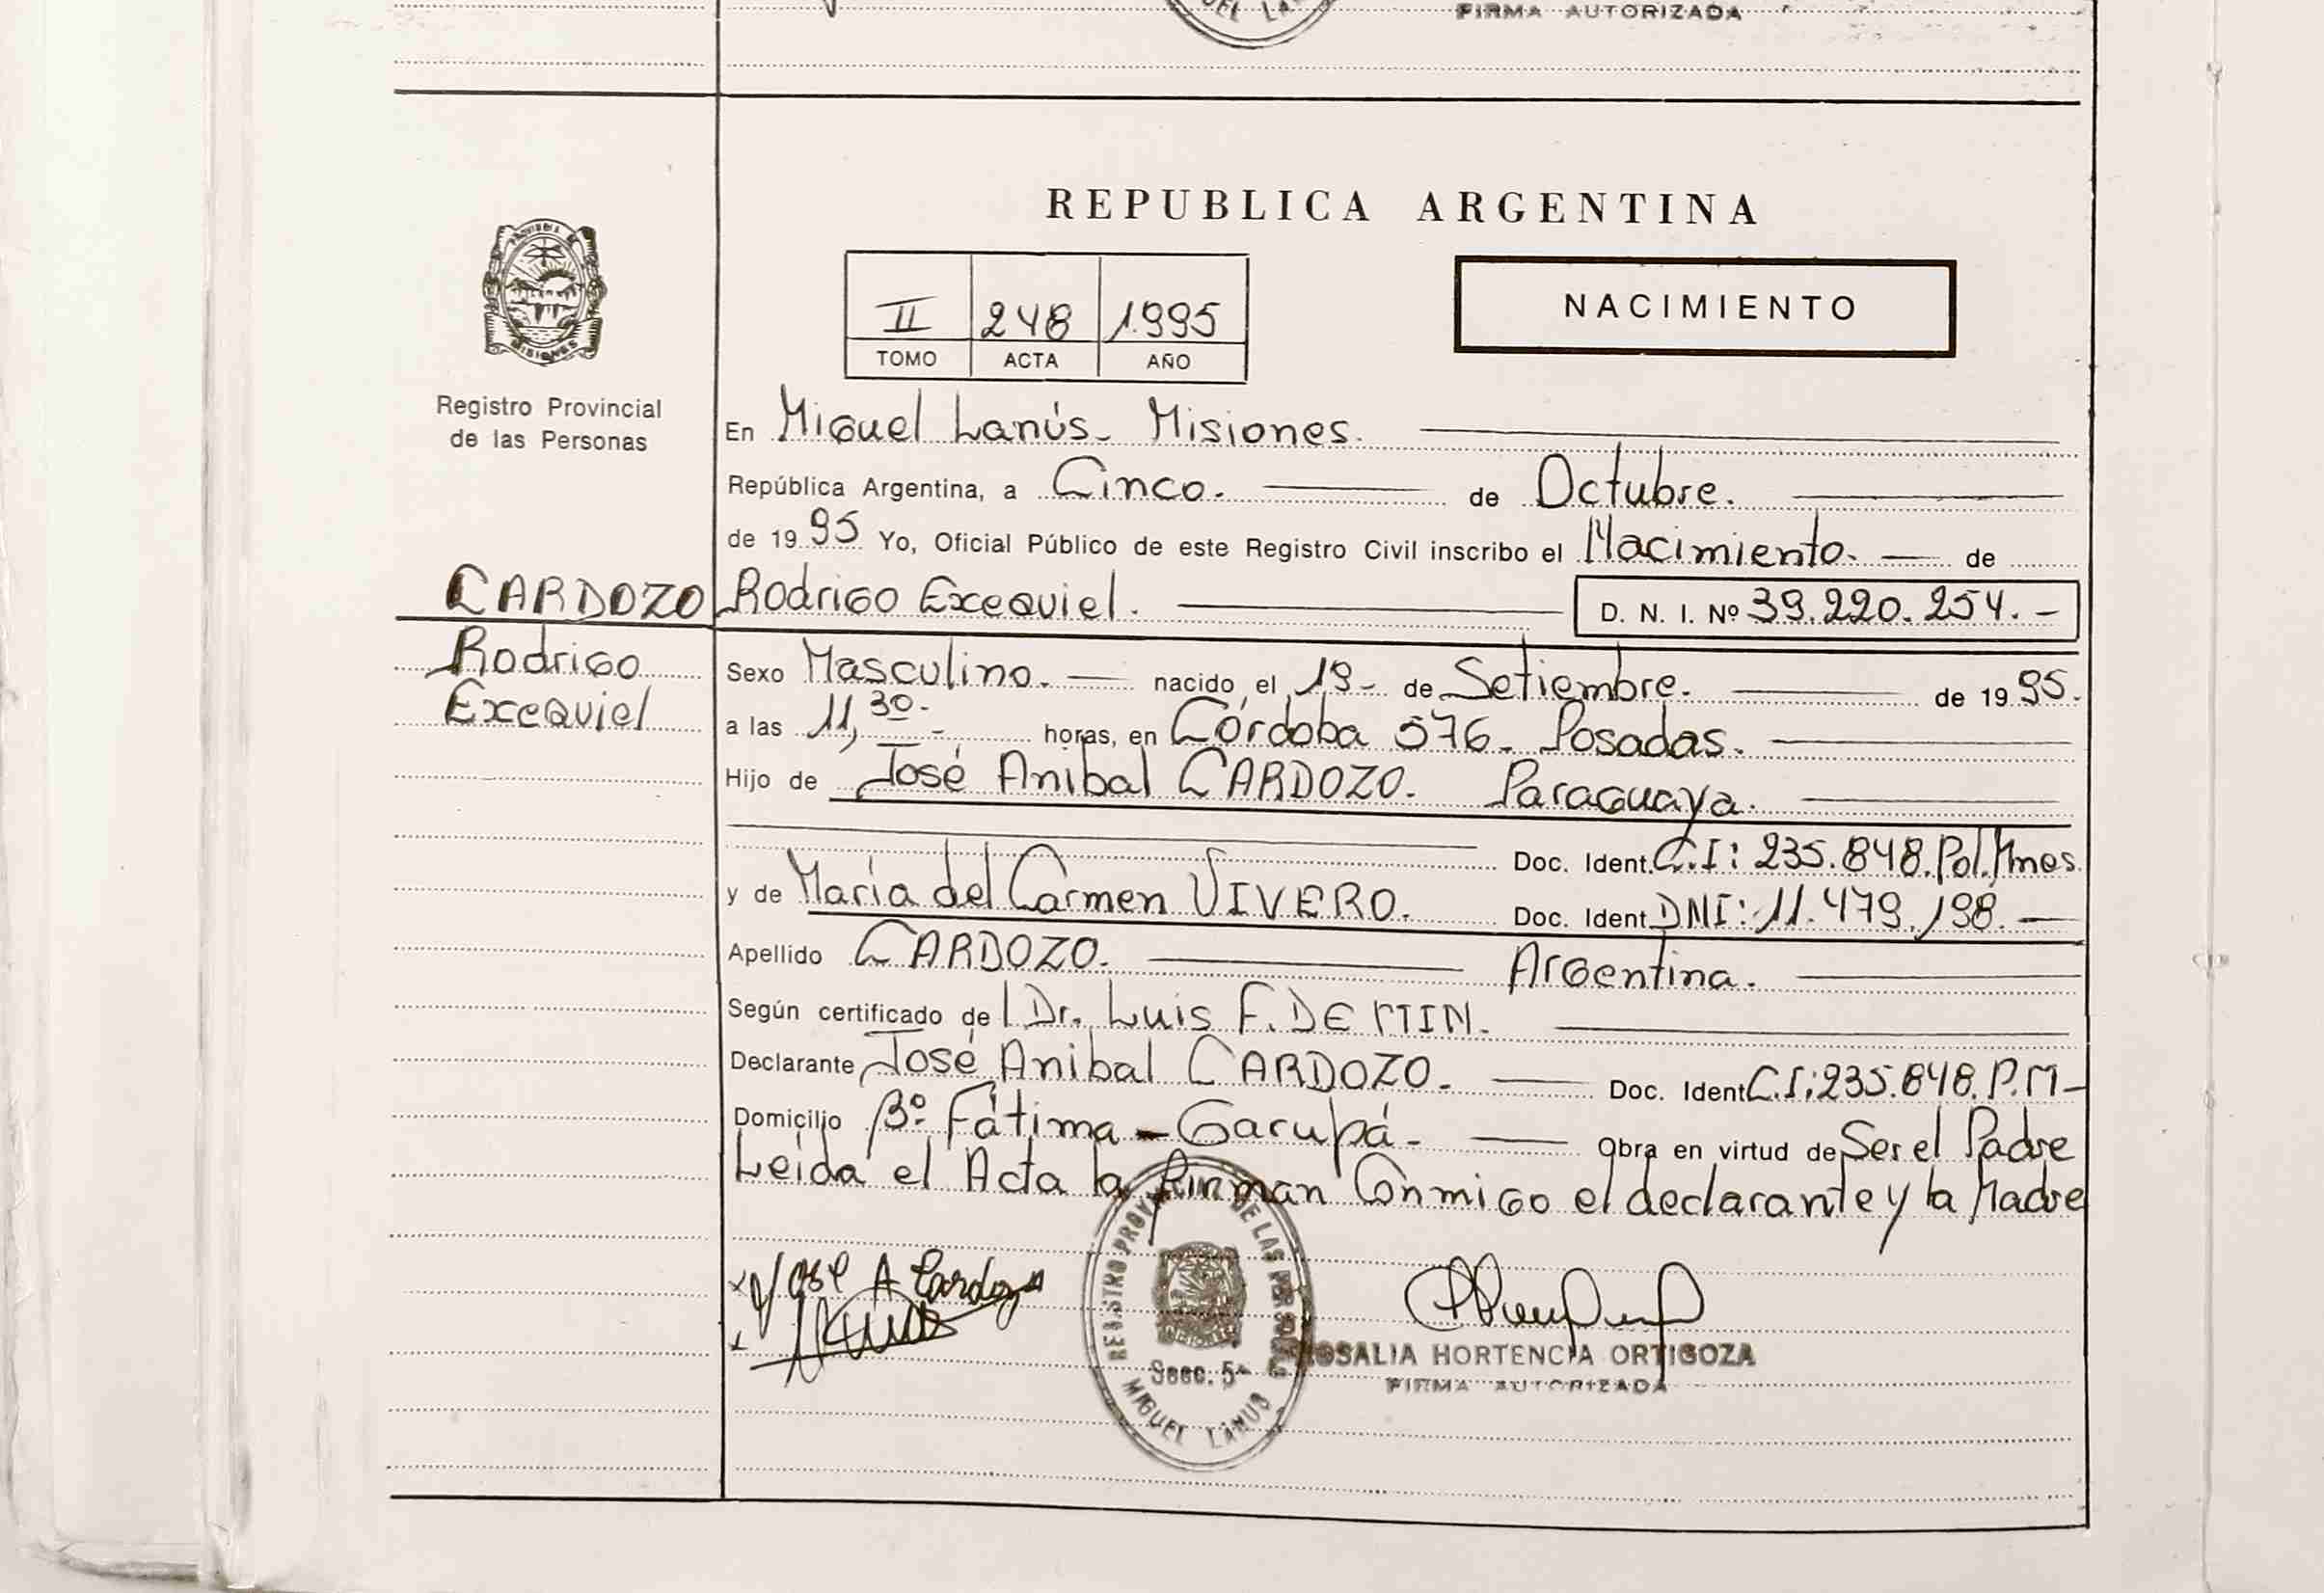 FIRMA AUTORIZADA
REPUBLICA ARGENTINA
II 248 1995
TOMO ACTA AÑO
NACIMIENTO
MISIONES
Registro Provincial
de las Personas
En Miguel Lanús- Misiones.
República Argentina, a Cinco. de Octubre.
de 1995 Yo, Oficial Público de este Registro Civil inscribo el Nacimiento. de
CARDOZO Rodrigo Exequiel. D. N. I. Nº 39.220.254.-
Rodrigo
Exequiel
Sexo Masculino. nacido el 19- de Setiembre. de 1995.
a las 11,30.- horas, en Córdoba 576- Posadas.
Hijo de José Anibal CARDOZO. Paraguaya.
Doc. Ident. C.I: 235.848.Pol.Mnes.
y de María del Carmen VIVERO. Doc. Ident. DNI: 11.479.198.
Apellido CARDOZO. Argentina.
Según certificado de l Dr. Luis F.
Declarante José Anibal CARDOZO. Doc. Ident C.I:235.848.P.M-
Domicilio Bº Fátima - Garupá. Obra en virtud de Ser el Padre
Leída el Acta la firman Conmigo el declarante y la Madre
José A Cardozo
REGISTRO PROVINCIAL DE LAS PERSONAS
Secc. 5ª
MIGUEL LANUS
ROSALIA HORTENCIA ORTIGOZA
FIRMA AUTORIZADA